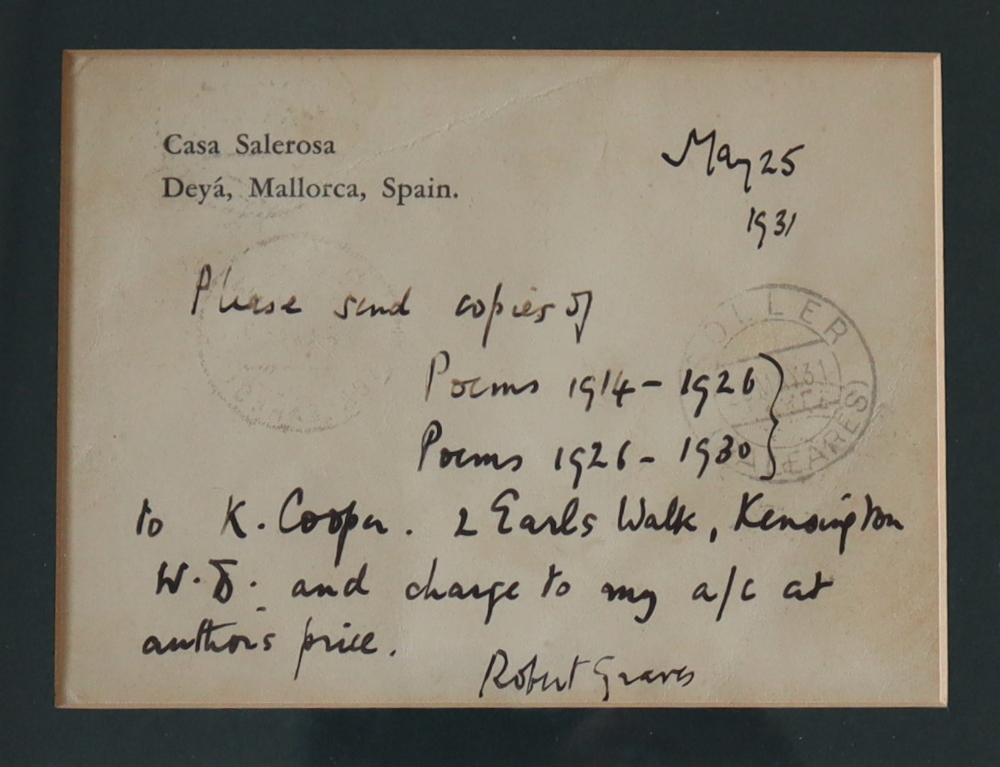 Casa Salerosa
Deyá, Mallorca, Spain.
May 25
1931
Please send copies of
Poems 1914 - 1926
Poems 1926 - 1930
to K. Cooper. 2 Earls Walk, Kensington
W.8. and charge to my a/c at
author's price.
Robert Graves
OLLER
31
BALEARES)